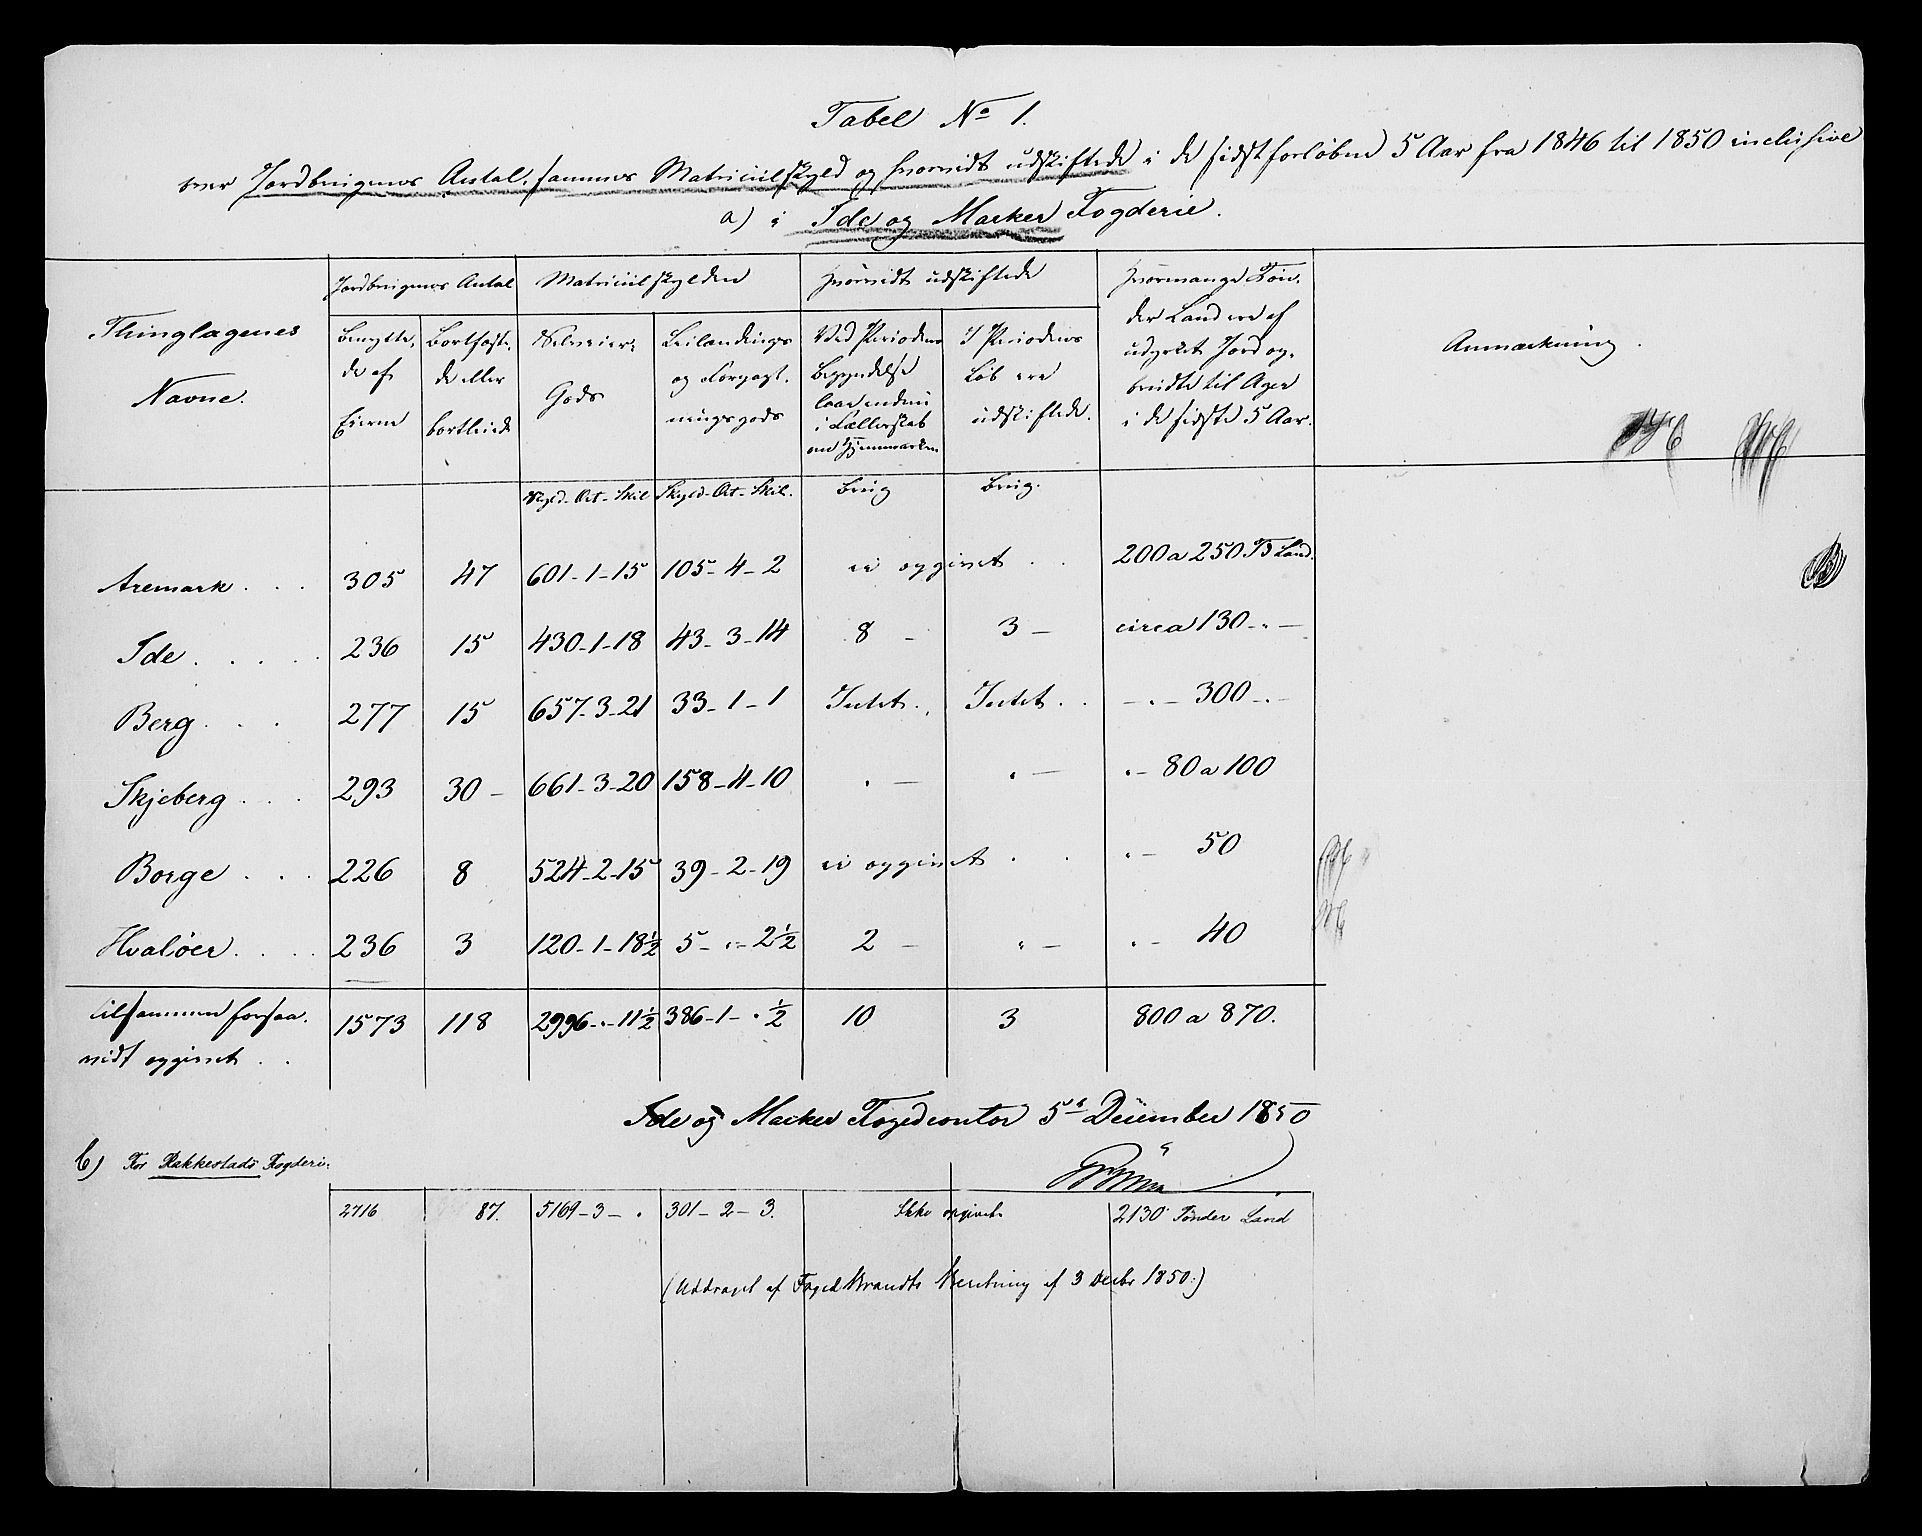 Tabel No 1.
over Jordbrugenes Antal, sammes Matriculskyld og hvorvidt udskiftede i de sidstforløbne 5 Aar fra 1846 til 1850 inclusive
a) i Ide og Marker Fogderie.
Thinglagenes
Navne.
Jordbrugenes Antal
Benytte-
de af
Eierne
Bortfæste-
de eller
bortleiede
Matriculskylden
Selveier-
Gods
Leilændings
og Forpagt-
ningsgods
Hvorvidt udskiftede
Ved Periodens
Begyndelse
laae endnu
i Fællesskab
om Hjemmarken
I Periodens
Løb ere
udskiftede.
Hvormange Tøn-
der Land ere af
udyrket Jord op-
brudte til Ager
i de sidste 5 Aar.
Anmærkning.
Skyld- Ort- Skil Skyld- Ort- Skil. Brug Brug.
Aremark . . . 305 47 601-1-15 105-4-2 ei opgivet . . 200 a 250 Td Land.
Ide . . . . . 236 15 430-1-18 43-3-14 8 - 3 - circa 130 -"-
Berg . . . 277 15 657-3-21 33-1-1 Intet . . Intet . . -"- 300 -"-
Skjeberg . . . 293 30 - 661-3-20 158-4-10 " - " - "- 80 a 100
Borge . . . 226 8 524-2-15 39-2-19 ei opgivet . . "- 50
Hvaløer . . . . 236 3 120-1-18½ 5-"-2½ 2 - " - "- 40
Tilsammen forsaa-
vidt opgivet . . 1573 118 2996-"-11½ 386-1-"½ 10 3 800 a 870.
Ide og Marker Fogedcontor 5te December 1850
b) For Rakkestads Fogderi:
2716 87. 5169-3-" 301-2-3. Ikke opgivet. 2130 Tønder Land
(Uddraget af Foged Brandts Beretning af 3 Decbr 1850.)